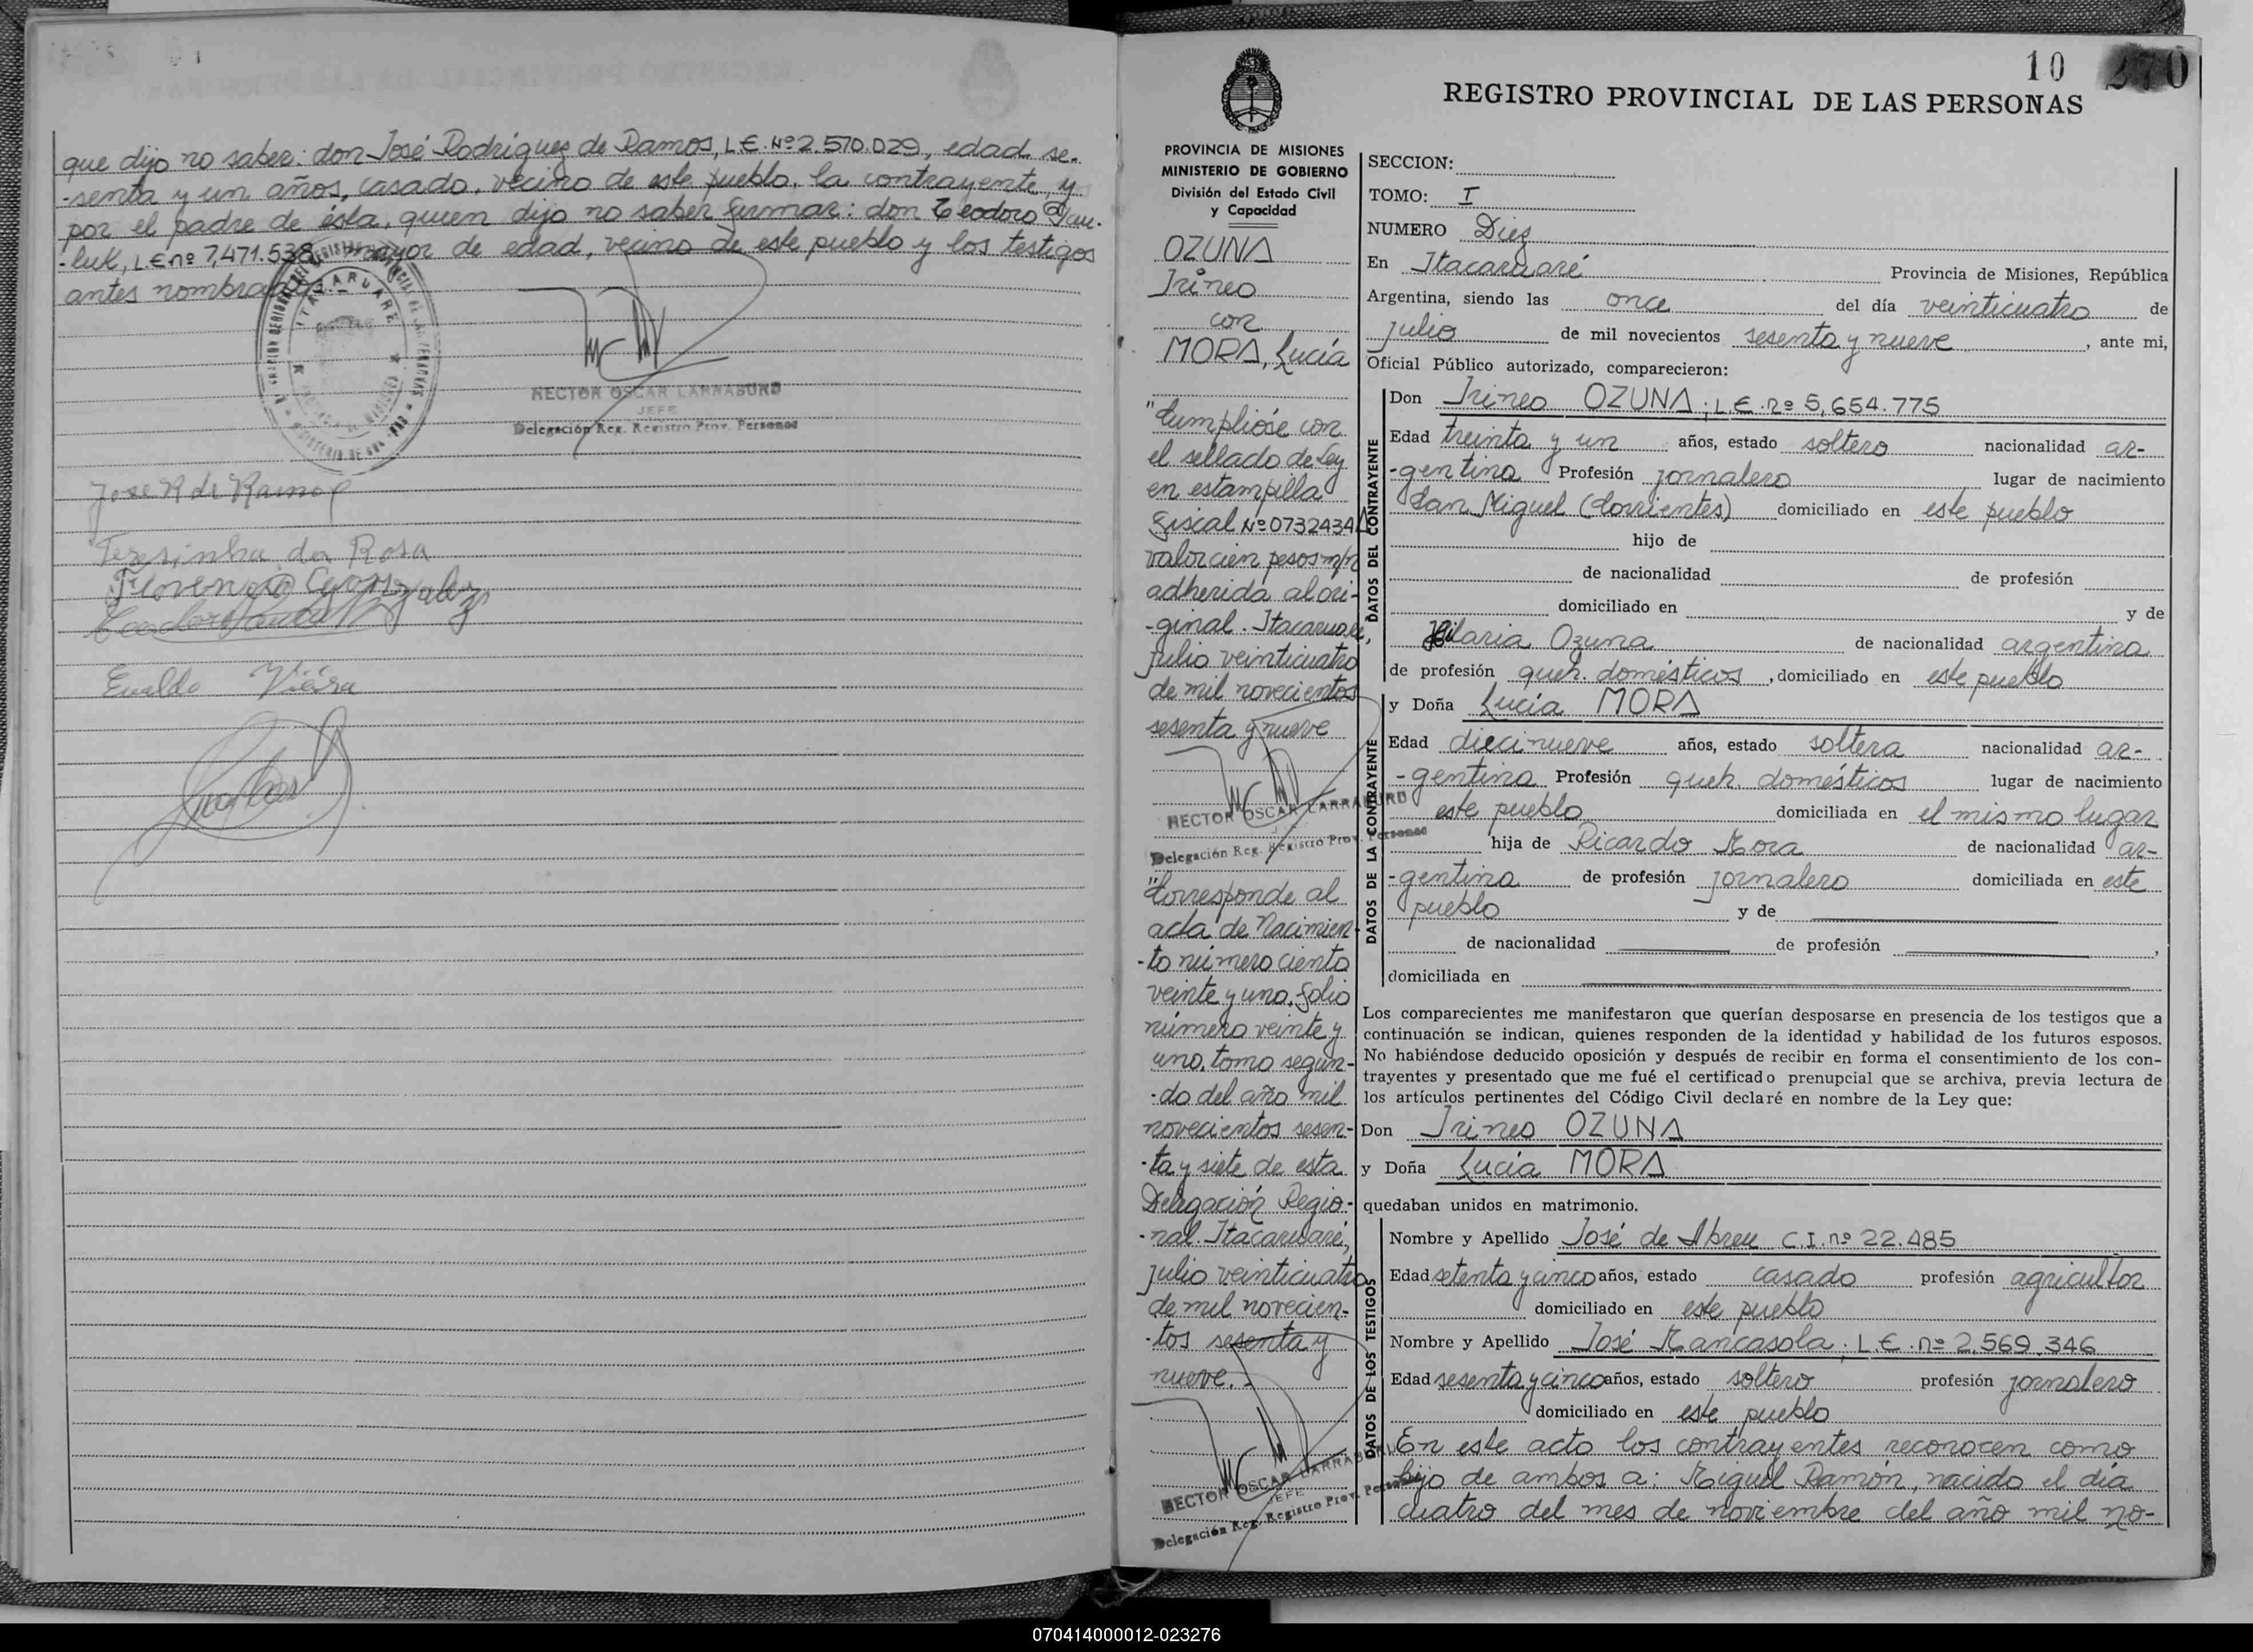 que dijo no saber: don José Rodriguez de Ramos, L.E. Nº 2.570.029, edad se-
-senta y un años, casado, vecino de este pueblo, la contrayente, y
por el padre de ésta, quien dijo no saber firmar: don Teodoro Pau-
-luk, L.E. nº 7,471.538, mayor de edad, vecino de este pueblo y los testigos
antes nombrados.-
ITACARUARE
HECTOR OSCAR LARRABURU
JEFE
Delegación Reg. Registro Prov. Personas
Jose R de Ramos
Terezinha da Rosa
Florencio Gonzalez
Evaldo Vieira
10 270
REGISTRO PROVINCIAL DE LAS PERSONAS
PROVINCIA DE MISIONES
MINISTERIO DE GOBIERNO
División del Estado Civil
y Capacidad
OZUNA
Irineo
con
MORA, Lucía
"Cumplióse con
el sellado de Ley
en estampilla
fiscal Nº 0732434
valor cien pesos m/n
adherida al ori-
-ginal. Itacaruaré,
julio veinticuatro
de mil novecientos
sesenta y nueve
HECTOR OSCAR LARRABURU
Delegación Reg. Registro Prov. Personas
"Corresponde al
acta de Nacimien-
-to número ciento
veinte y uno, folio
número veinte y
uno, tomo segun-
-do del año mil
novecientos sesen-
-ta y siete de esta
Delegación Regio-
-nal. Itacaruaré,
julio veinticuatro
de mil novecien-
-tos sesenta y
nueve.-
HECTOR OSCAR LARRABURU
JEFE
Delegación Reg. Registro Prov. Personas
SECCION:
TOMO: I
NUMERO Diez
En Itacaruaré Provincia de Misiones, República
Argentina, siendo las once del día veinticuatro de
julio de mil novecientos sesenta y nueve, ante mi,
Oficial Público autorizado, comparecieron:
DATOS DEL CONTRAYENTE
Don Irineo OZUNA; L.E. nº 5,654.775
Edad treinta y un años, estado soltero nacionalidad ar-
-gentina Profesión jornalero lugar de nacimiento
San Miguel (Corrientes) domiciliado en este pueblo
hijo de
de nacionalidad de profesión
domiciliado en y de
Hilaria Ozuna de nacionalidad argentina
de profesión queh. domésticos, domiciliado en este pueblo
DATOS DE LA CONTRAYENTE
y Doña Lucía MORA
Edad diecinueve años, estado soltera nacionalidad ar-
-gentina Profesión queh. domésticos lugar de nacimiento
este pueblo domiciliada en el mismo lugar
hija de Ricardo Mora de nacionalidad ar-
-gentina de profesión jornalero domiciliada en este
pueblo y de
de nacionalidad de profesión ,
domiciliada en
Los comparecientes me manifestaron que querían desposarse en presencia de los testigos que a
continuación se indican, quienes responden de la identidad y habilidad de los futuros esposos.
No habiéndose deducido oposición y después de recibir en forma el consentimiento de los con-
trayentes y presentado que me fué el certificado prenupcial que se archiva, previa lectura de
los artículos pertinentes del Código Civil declaré en nombre de la Ley que:
Don Irineo OZUNA
y Doña Lucía MORA
quedaban unidos en matrimonio.
DATOS DE LOS TESTIGOS
Nombre y Apellido José de Abreu C.I. nº 22.485
Edad setenta y cinco años, estado casado profesión agricultor
domiciliado en este pueblo
Nombre y Apellido José Mancasola; L.E. nº 2,569.346
Edad sesenta y cinco años, estado soltero profesión jornalero
domiciliado en este pueblo
En este acto los contrayentes reconocen como
hijo de ambos a: Miguel Ramón, nacido el día
cuatro del mes de noviembre del año mil no-
070414000012-023276